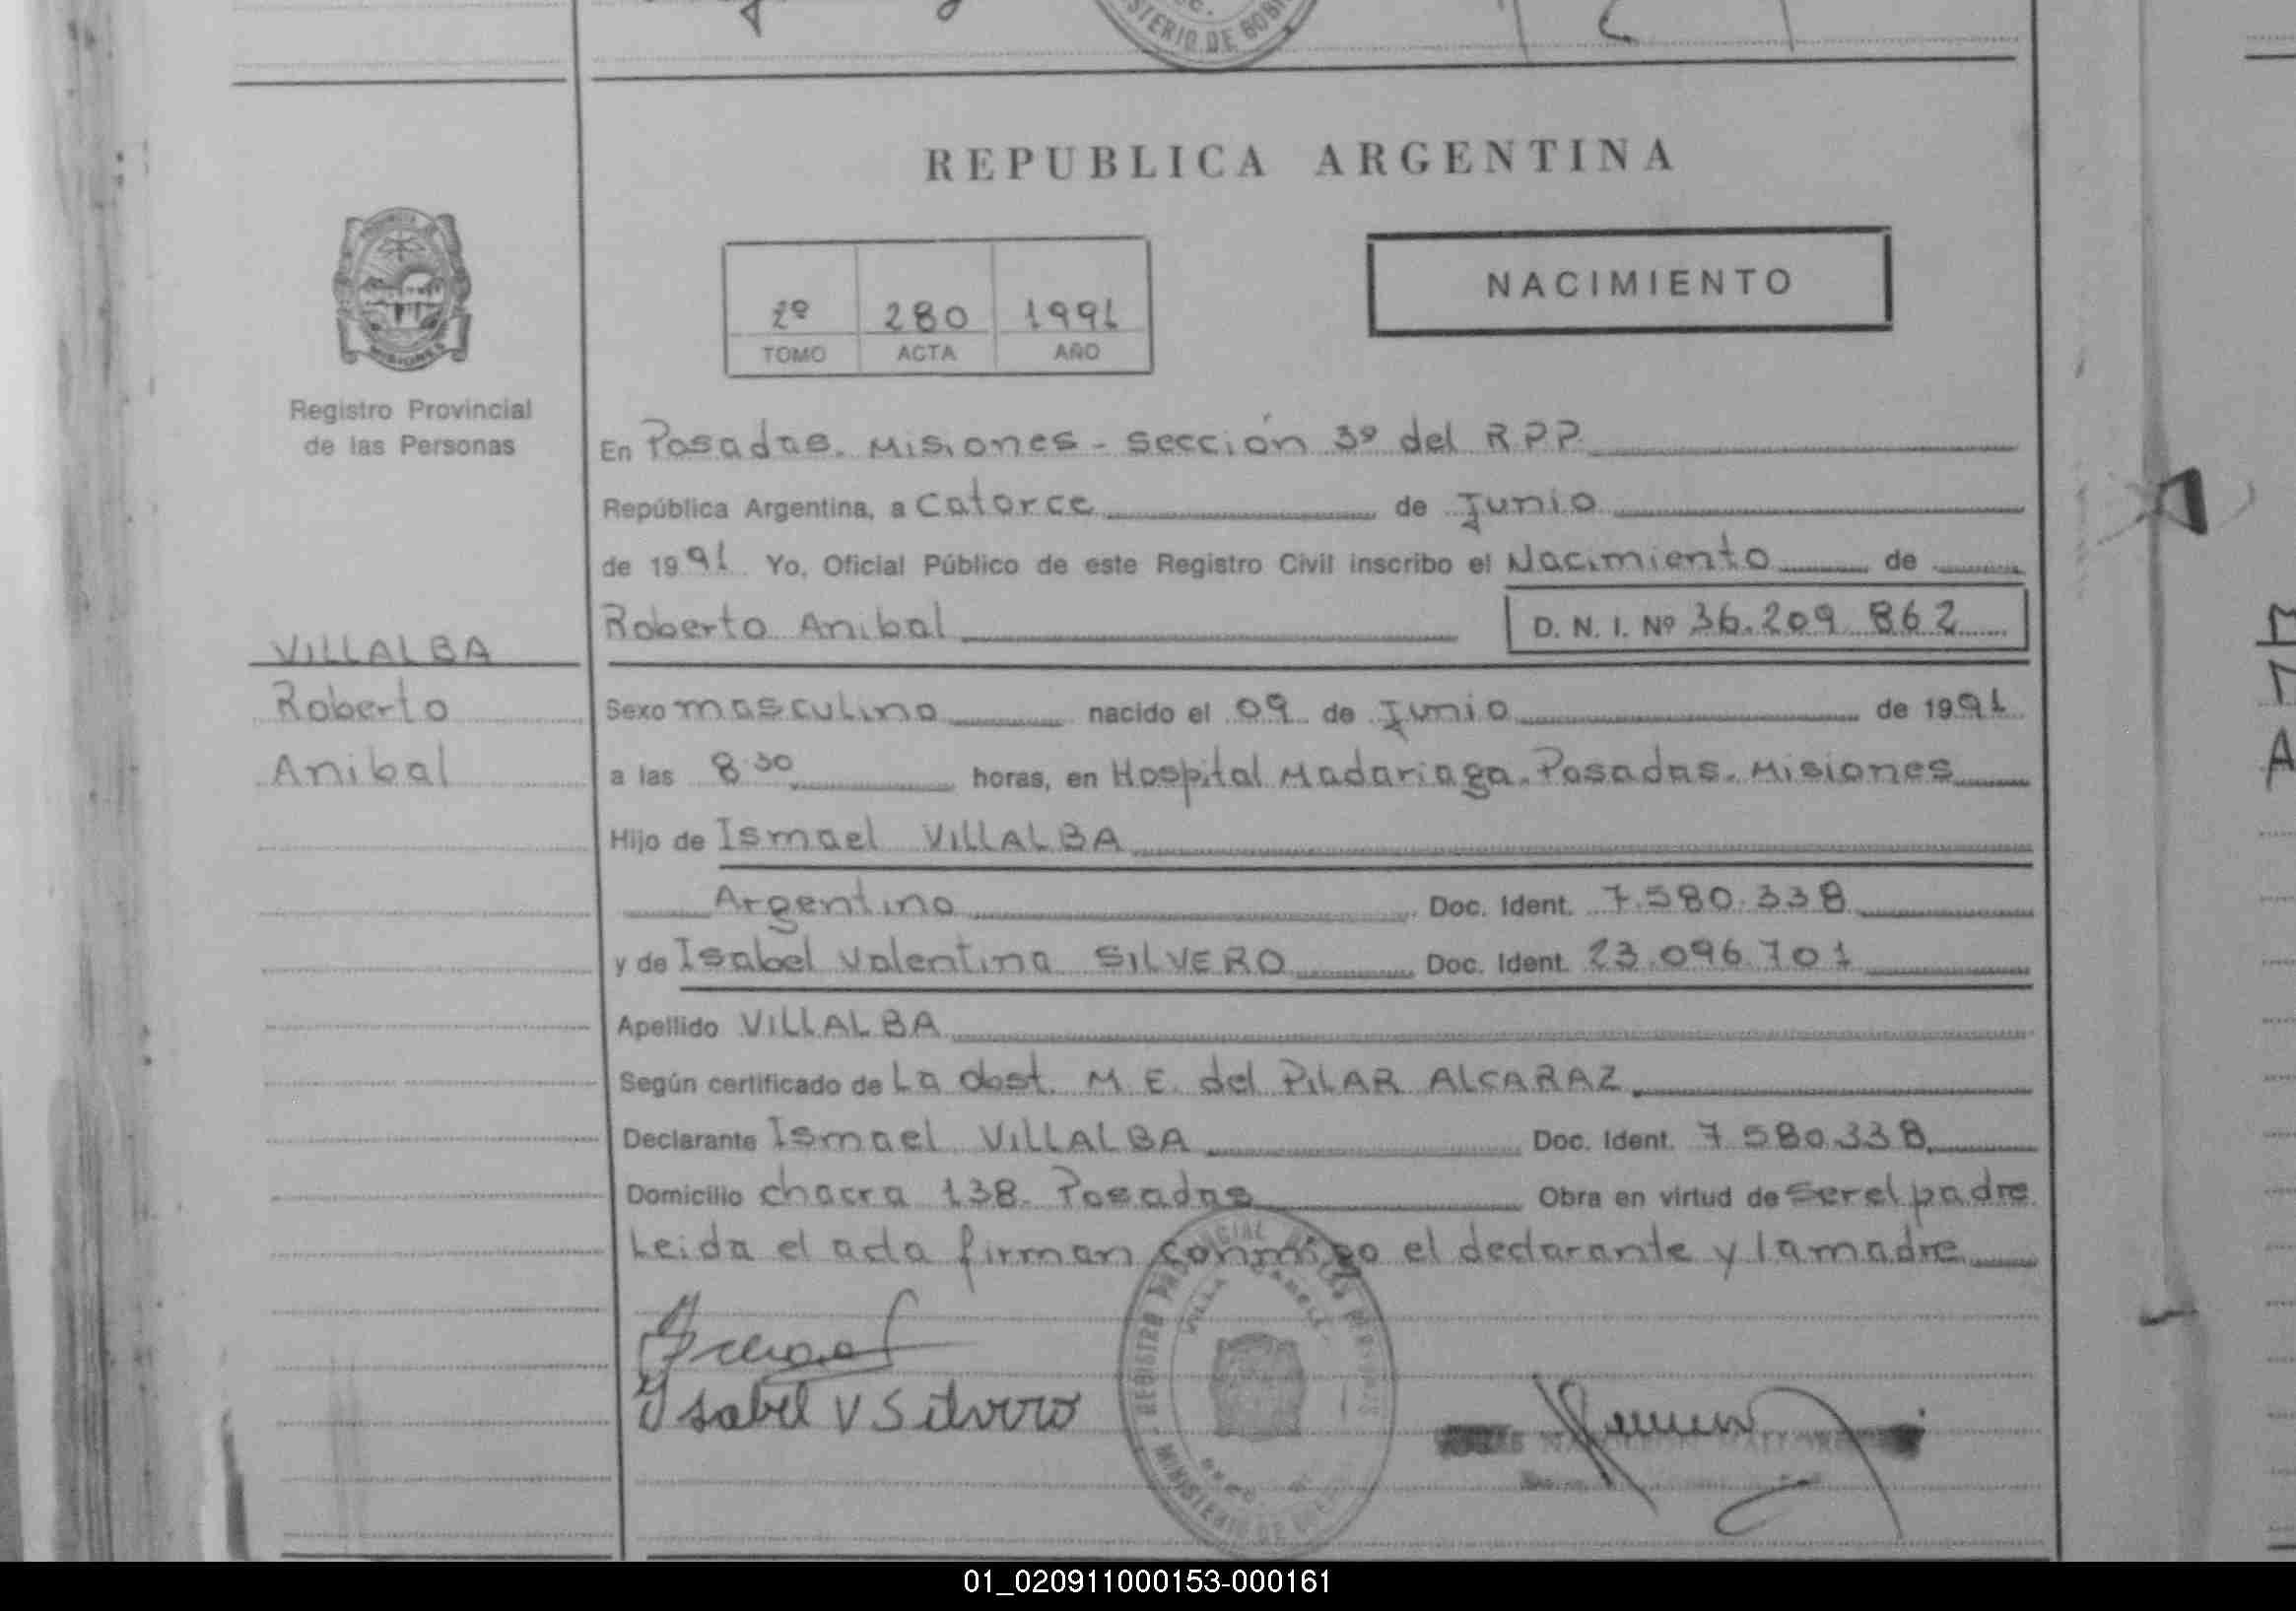 REPUBLICA ARGENTINA
NACIMIENTO
2º 280 1991
TOMO ACTA AÑO
MISIONES
Registro Provincial
de las Personas
En Posadas. Misiones - Sección 3º del R.P.P.
República Argentina, a Catorce de Junio
de 1991 Yo, Oficial Público de este Registro Civil inscribo el Nacimiento de
Roberto Anibal D. N. I. Nº 36.209.862
VILLALBA
Roberto
Anibal
Sexo masculino nacido el 09 de Junio de 1991
a las 8:30 horas, en Hospital Madariaga. Posadas. Misiones
Hijo de Ismael VILLALBA
Argentino Doc. Ident. 7.580.338
y de Isabel Valentina SILVERO Doc. Ident. 23.096.701
Apellido VILLALBA
Según certificado de La obst. M. E. del PILAR ALCARAZ
Declarante Ismael VILLALBA Doc. Ident. 7.580.338
Domicilio chacra 138. Posadas Obra en virtud de ser el padre
Leida el acta firman conmigo el declarante y la madre
Isabel V Silvero
MINISTERIO DE
01_020911000153-000161